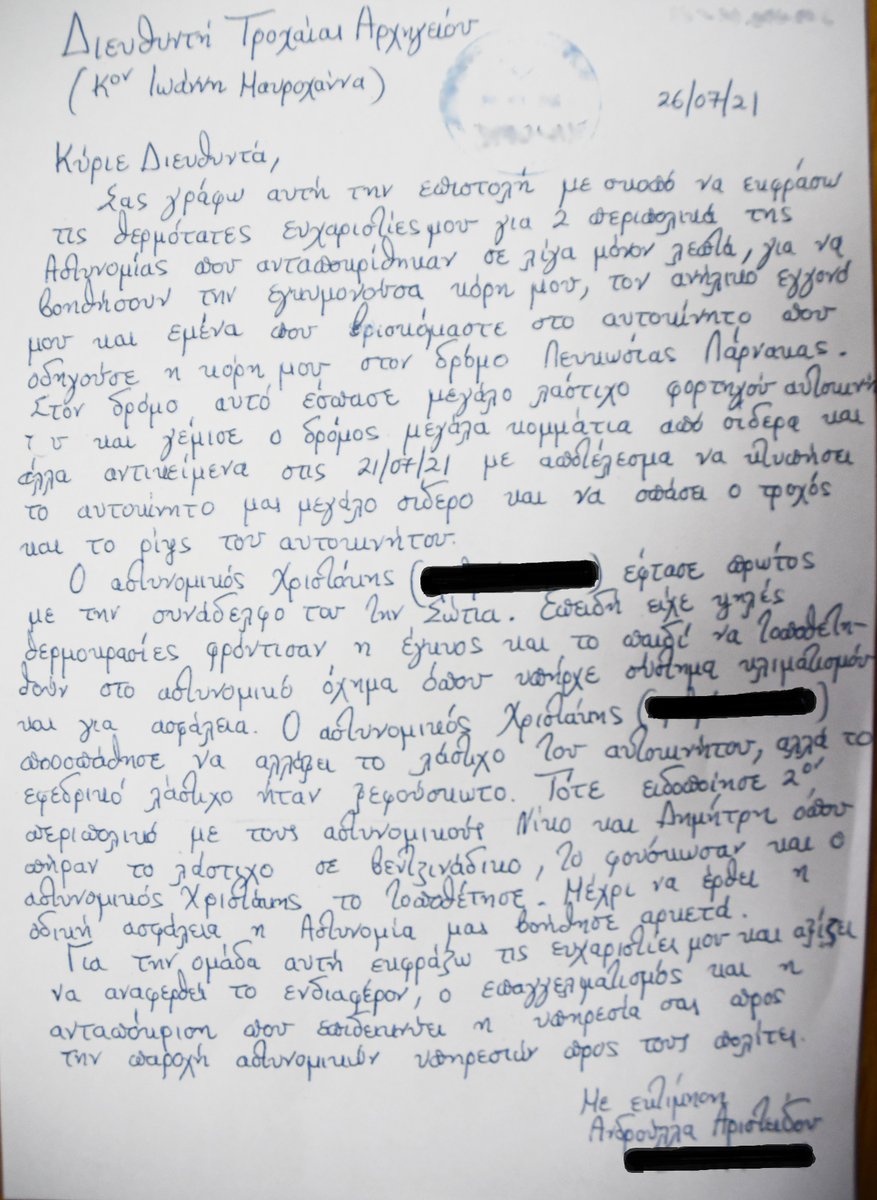 Διευθυντή Τροχαίας Αρχηγείου
(Κον Ιωάννη Μαυροχάννα)
26/07/21
Κύριε Διευθυντά,
Σας γράφω αυτή την επιστολή με σκοπό να εκφράσω
τις θερμότατες ευχαριστίες μου για 2 περιπολικά της
Αστυνομίας που ανταποκρίθηκαν σε λίγα μόνον λεπτά, για να
βοηθήσουν την εγκυμονούσα κόρη μου, τον ανήλικο εγγονό
μου και εμένα που βρισκόμαστε στο αυτοκίνητο που
οδηγούσε η κόρη μου στον δρόμο Λευκωσίας Λάρνακας.
Στον δρόμο αυτό έσπασε μεγάλο λάστιχο φορτηγού αυτοκινή
του και γέμισε ο δρόμος μεγάλα κομμάτια από σίδερα και
άλλα αντικείμενα στις 21/07/21 με αποτέλεσμα να κτυπήσει
το αυτοκίνητο μας μεγάλο σίδερο και να σπάσει ο τροχός
και το ρίγς του αυτοκινήτου.
Ο αστυνομικός Χριστάκης ( ) έφτασε πρώτος
με την συνάδελφο του την Σώτια. Επειδή είχε ψηλές
θερμοκρασίες φρόντισαν η έγκυος και το παιδί να τοποθετη-
θούν στο αστυνομικό όχημα όπου υπήρχε σύστημα κλιματισμού
και για ασφάλεια. Ο αστυνομικός Χριστάκης ( )
προσπάθησε να αλλάξει το λάστιχο του αυτοκινήτου, αλλά το
εφεδρικό λάστιχο ήταν ξεφούσκωτο. Τότε ειδοποίησε 2ον
περιπολικό με τους αστυνομικούς Νίκο και Δημήτρη όπου
πήραν το λάστιχο σε βενζινάδικο, το φούσκωσαν και ο
αστυνομικός Χριστάκης το τοποθέτησε. Μέχρι να έρθει η
οδική ασφάλεια η Αστυνομία μας βοήθησε αρκετά.
Για την ομάδα αυτή εκφράζω τις ευχαριστίες μου και αξίζει
να αναφερθεί το ενδιαφέρον, ο επαγγελματισμός και η
ανταπόκριση που επιδεικνύει η υπηρεσία σας προς
την παροχή αστυνομικών υπηρεσιών προς τους πολίτες.
Με εκτίμηση
Ανδρούλλα Αριστείδου